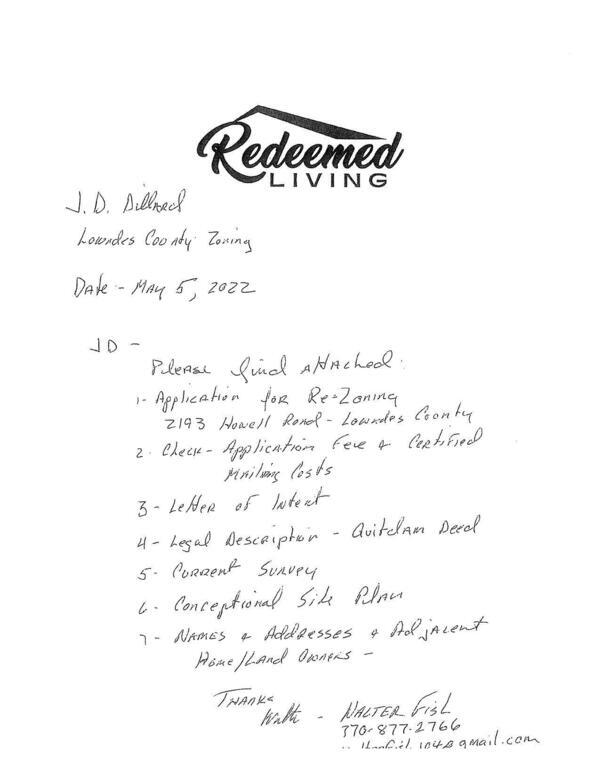 Redeemed
LIVING
J. D. Dillard
Lowndes County Zoning
Date - May 5, 2022
JD -
Please find attached:
1- Application for Re-Zoning
2193 Howell Road - Lowndes County
2. Check - Application Fee & Certified
Mailing Costs
3 - Letter of Intent
4 - Legal Description - Quitclaim Deed
5 - Current Survey
6 - Conceptional Site Plan
7 - Names & Addresses & Adjacent
Home/Land Owners -
Thanks
Walter - Walter Fish
770-877-2766
@gmail.com